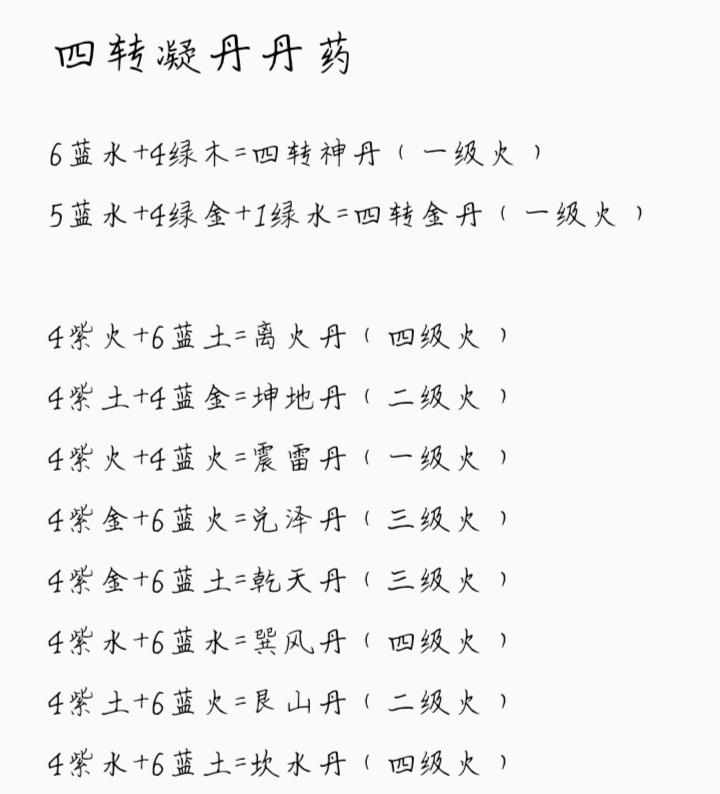 四转凝丹丹药
6蓝水+4绿木=四转神丹（一级火）
5蓝水+4绿金+1绿水=四转金丹（一级火）
4紫火+6蓝土=离火丹（四级火）
4紫土+4蓝金=坤地丹（二级火）
4紫火+4蓝火=震雷丹（一级火）
4紫金+6蓝火=兑泽丹（三级火）
4紫金+6蓝土=乾天丹（三级火）
4紫水+6蓝水=巽风丹（四级火）
4紫土+6蓝火=艮山丹（二级火）
4紫水+6蓝土=坎水丹（四级火）